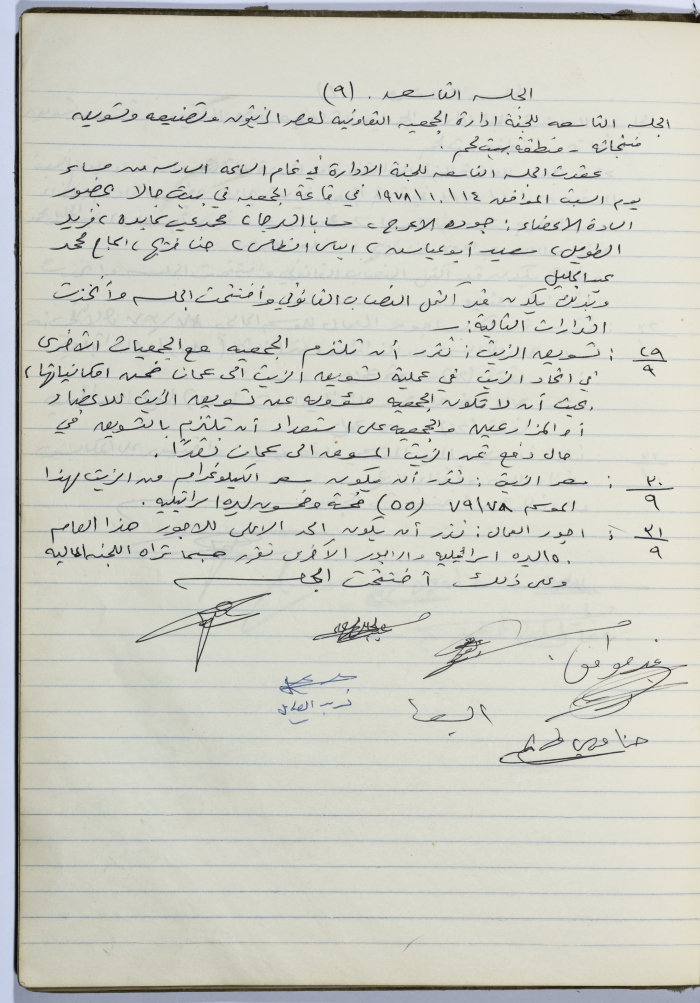 الجلسه التاسعه . (٩)
الجلسه التاسعه للجنة ادارة الجمعيه التعاونيه لعصر الزيتون وتصنيعه وتسويق
منتجاته - منطقة بيت لحم .
عقدت الجلسه التاسعه للجنة الادارة في تمام الساعه السادسه من مساء
يوم السبت الموافق ١٩٧٨/١٠/١٤ في قاعة الجمعيه في بيت جالا بحضور
السادة الاعضاء : جوده الاعرج ، سابا الدجا ، محمد عابده ، فريد
الطويل ، سعيد أبو عياش ، الياس ، حنا ، الحاج محمد
عبد الجليل
وبذلك يكون قد اكتمل النصاب القانوني وأفتتحت الجلسه وأتخذت
القرارات التالية : ــ
٢٩/٩ : تسويق الزيت : تقرر أن تلتزم الجمعيه مع الجمعيات الأخرى
في اتحاد الزيت في عملية تسويق الزيت الى عمان ضمن امكانياتها ،
بحيث أن لا تكون الجمعيه مسؤوله عن تسويق الزيت للاعضاء
أو المزارعين والجمعيه على استعداد أن تلتزم بالتسويق في
حال دفع ثمن الزيت المسوق الى عمان نقدًا .
٣٠/٩ : سعر الزيت : تقرر أن يكون سعر الكيلوغرام من الزيت لهذا
الموسم ٧٩/٧٨ (٥٥) خمسة وخمسون ليره اسرائيليه .
٣١/٩ : اجور العمال : تقرر أن يكون الحد الاعلى للاجور هذا العام
١٥٠ ليره اسرائيليه والاجور الأخرى تقرر حسبما تراه اللجنه الماليه
وعلى ذلك أختتمت الجلسه
غير موافق .
فريد الطويل
حنا